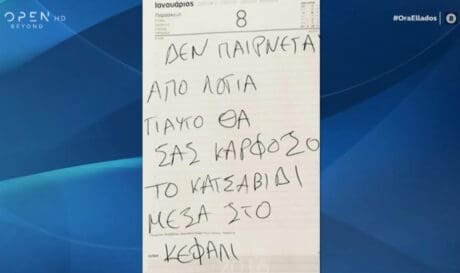 OPEN HD
BEYOND
#OraEllados
Ιανουάριος
Παρασκευή
8
ΔΕΝ ΠΑΙΡΝΕΤΑΙ
ΑΠΟ ΛΟΓΙΑ
ΓΙΑΥΤΟ ΘΑ
ΣΑΣ ΚΑΡΦΟΣΟ
ΤΟ ΚΑΤΣΑΒΙΔΙ
ΜΕΣΑ ΣΤΟ
ΚΕΦΑΛΙ